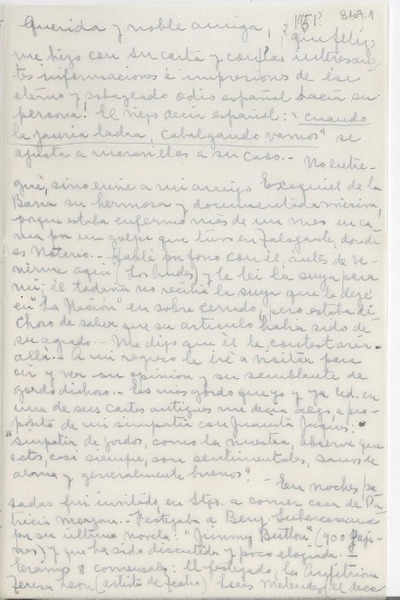 8109.1
¿1951?
Querida y noble amiga, ¡que feliz
me hizo con su carta y con las interesan-
tes informaciones é impresiones de ése
eterno y solapado odio español hacia su
persona! El viejo decir español: "cuando
la jauría ladra, cabalgando vamos" se
ajusta a maravillas a su caso.- No entre-
gué, sino envié a mi amigo Exequiel de la
Barra su hermosa y documentada misiva,
porque estaba enfermo más de un mes en ca-
ma por un golpe que tuvo en Talagante, donde
es Notario.- Hablé por fono con él, antes de ve-
nirme aquí (Los Lindos) y le leí la suya para
mí; él todavía no recibía la suya que le dejé
en "La Nación" en sobre cerrado, pero estaba di-
choso de saber que su artículo había sido de
su agrado.- Me dijo que él le contestaría.-
allá.- A mi regreso le iré a visitar para
oir y ver su opinión y su semblante de
gordo dichoso.- Es más gordo que yo y ya Ud. en
una de sus cartas antiguas me decía algo, a pro-
pósito de mi simpatía con Juanita Jaques:
"simpatía de gordos, como la nuestra, observe que
estos, casi siempre, son sentimentales, sanos de
alma y generalmente buenos".
En noches pa-
sadas fuí invitado en Stgo. a comer casa de Pa-
tricio Morgan.- Festejaba a Benj. Subercaseaux
por su última novela: "Jimmy Button" (700 pági-
nas) y que ha sido discutida y poco elogiada.-
Eramos 8 comensales: el festejado, los Anfitriones
Teresa León (artista de teatro) Luis Meléndez, el deca